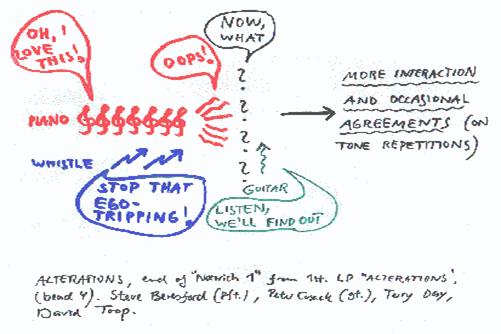 OH, I
LOVE
THIS!
OOPS!
NOW,
WHAT
?
?
?
?
?
PIANO
WHISTLE
STOP THAT
EGO-
TRIPPING!
GUITAR
LISTEN,
WE'LL FIND OUT
MORE INTERACTION
AND OCCASIONAL
AGREEMENTS (ON
TONE REPETITIONS)
ALTERATIONS, end of "Norwich 1" from 1st. LP "ALTERATIONS",
(bead 9). Steve Beresford (pft.), Peter Cusack (gt.), Terry Day,
David Toop.